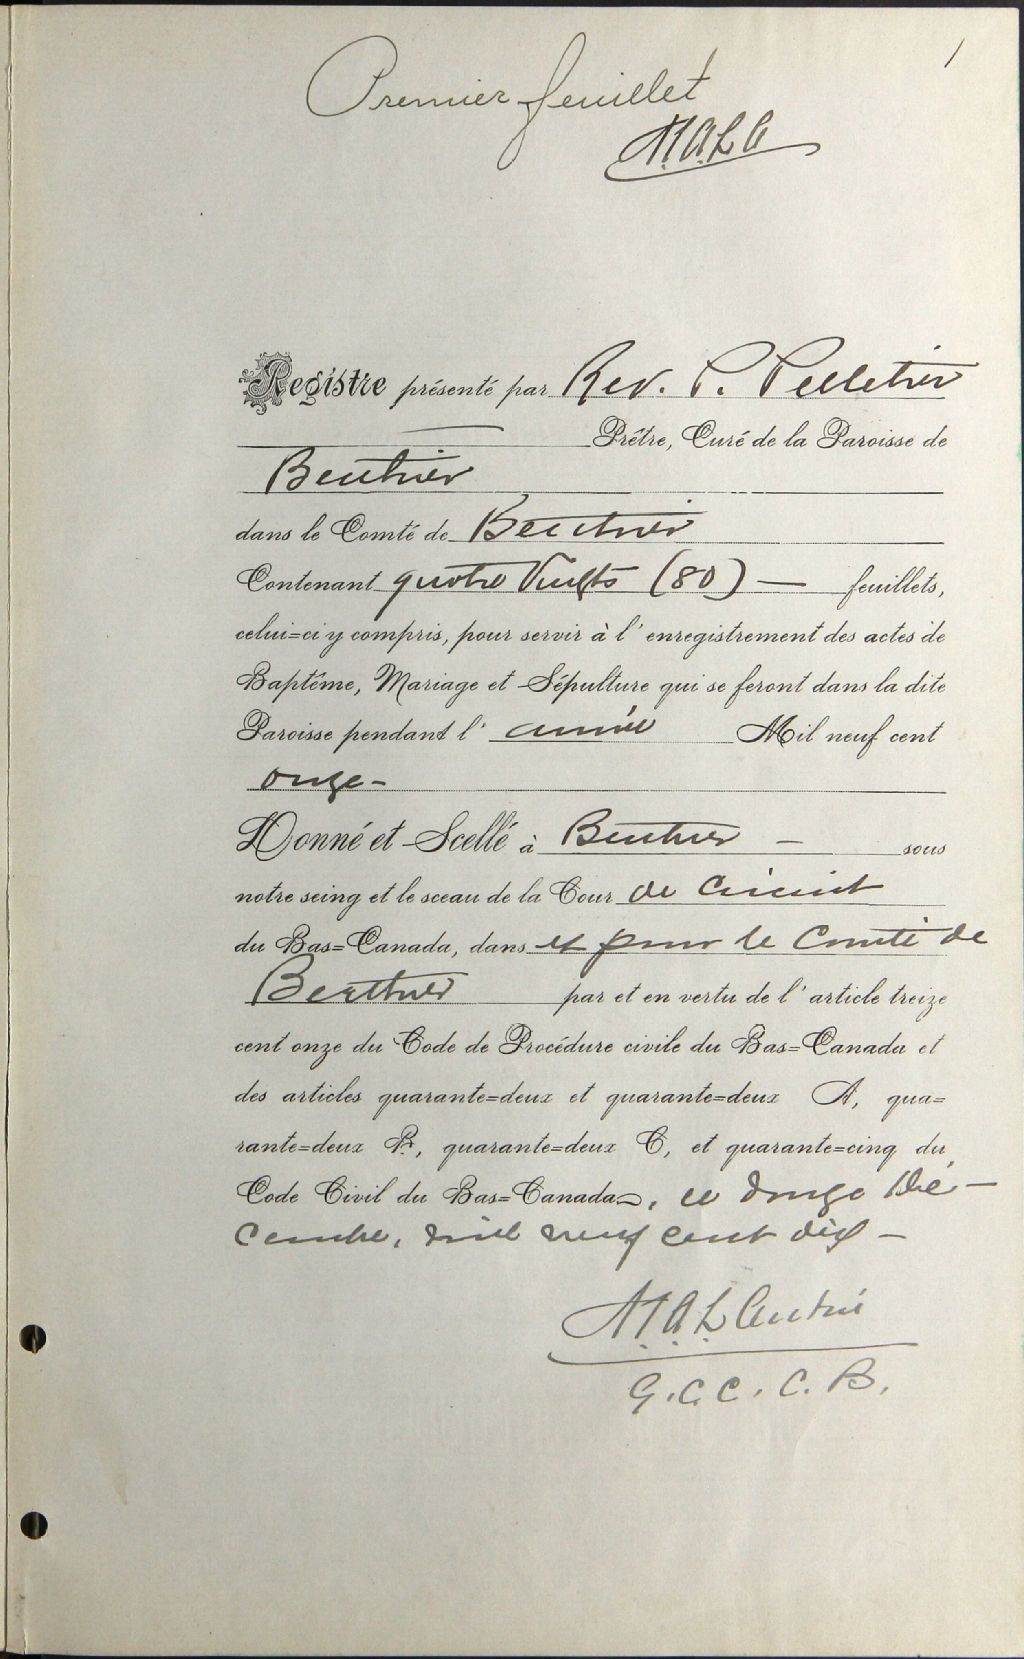 1
Premier feuillet
A.A.L.A
Registre présenté par Rev. P. Pelletier
Prêtre, Curé de la Paroisse de
Berthier
dans le Comté de Berthier
Contenant quatre Vingts (80) — feuillets,
celui=ci y compris, pour servir à l'enregistrement des actes de
Baptême, Mariage et Sépulture qui se feront dans la dite
Paroisse pendant l' année Mil neuf cent
onze -
Donné et Scellé à Berthier - sous
notre seing et le sceau de la Cour de Circuit
du Bas=Canada, dans et pour le Comté de
Berthier par et en vertu de l'article treize
cent onze du Code de Procédure civile du Bas=Canada et
des articles quarante=deux et quarante=deux A, qua=
rante=deux B, quarante=deux C, et quarante=cinq du
Code Civil du Bas=Canada, ce douze Dé-
cembre, mil neuf cent dix -
G.C.C.C.B.